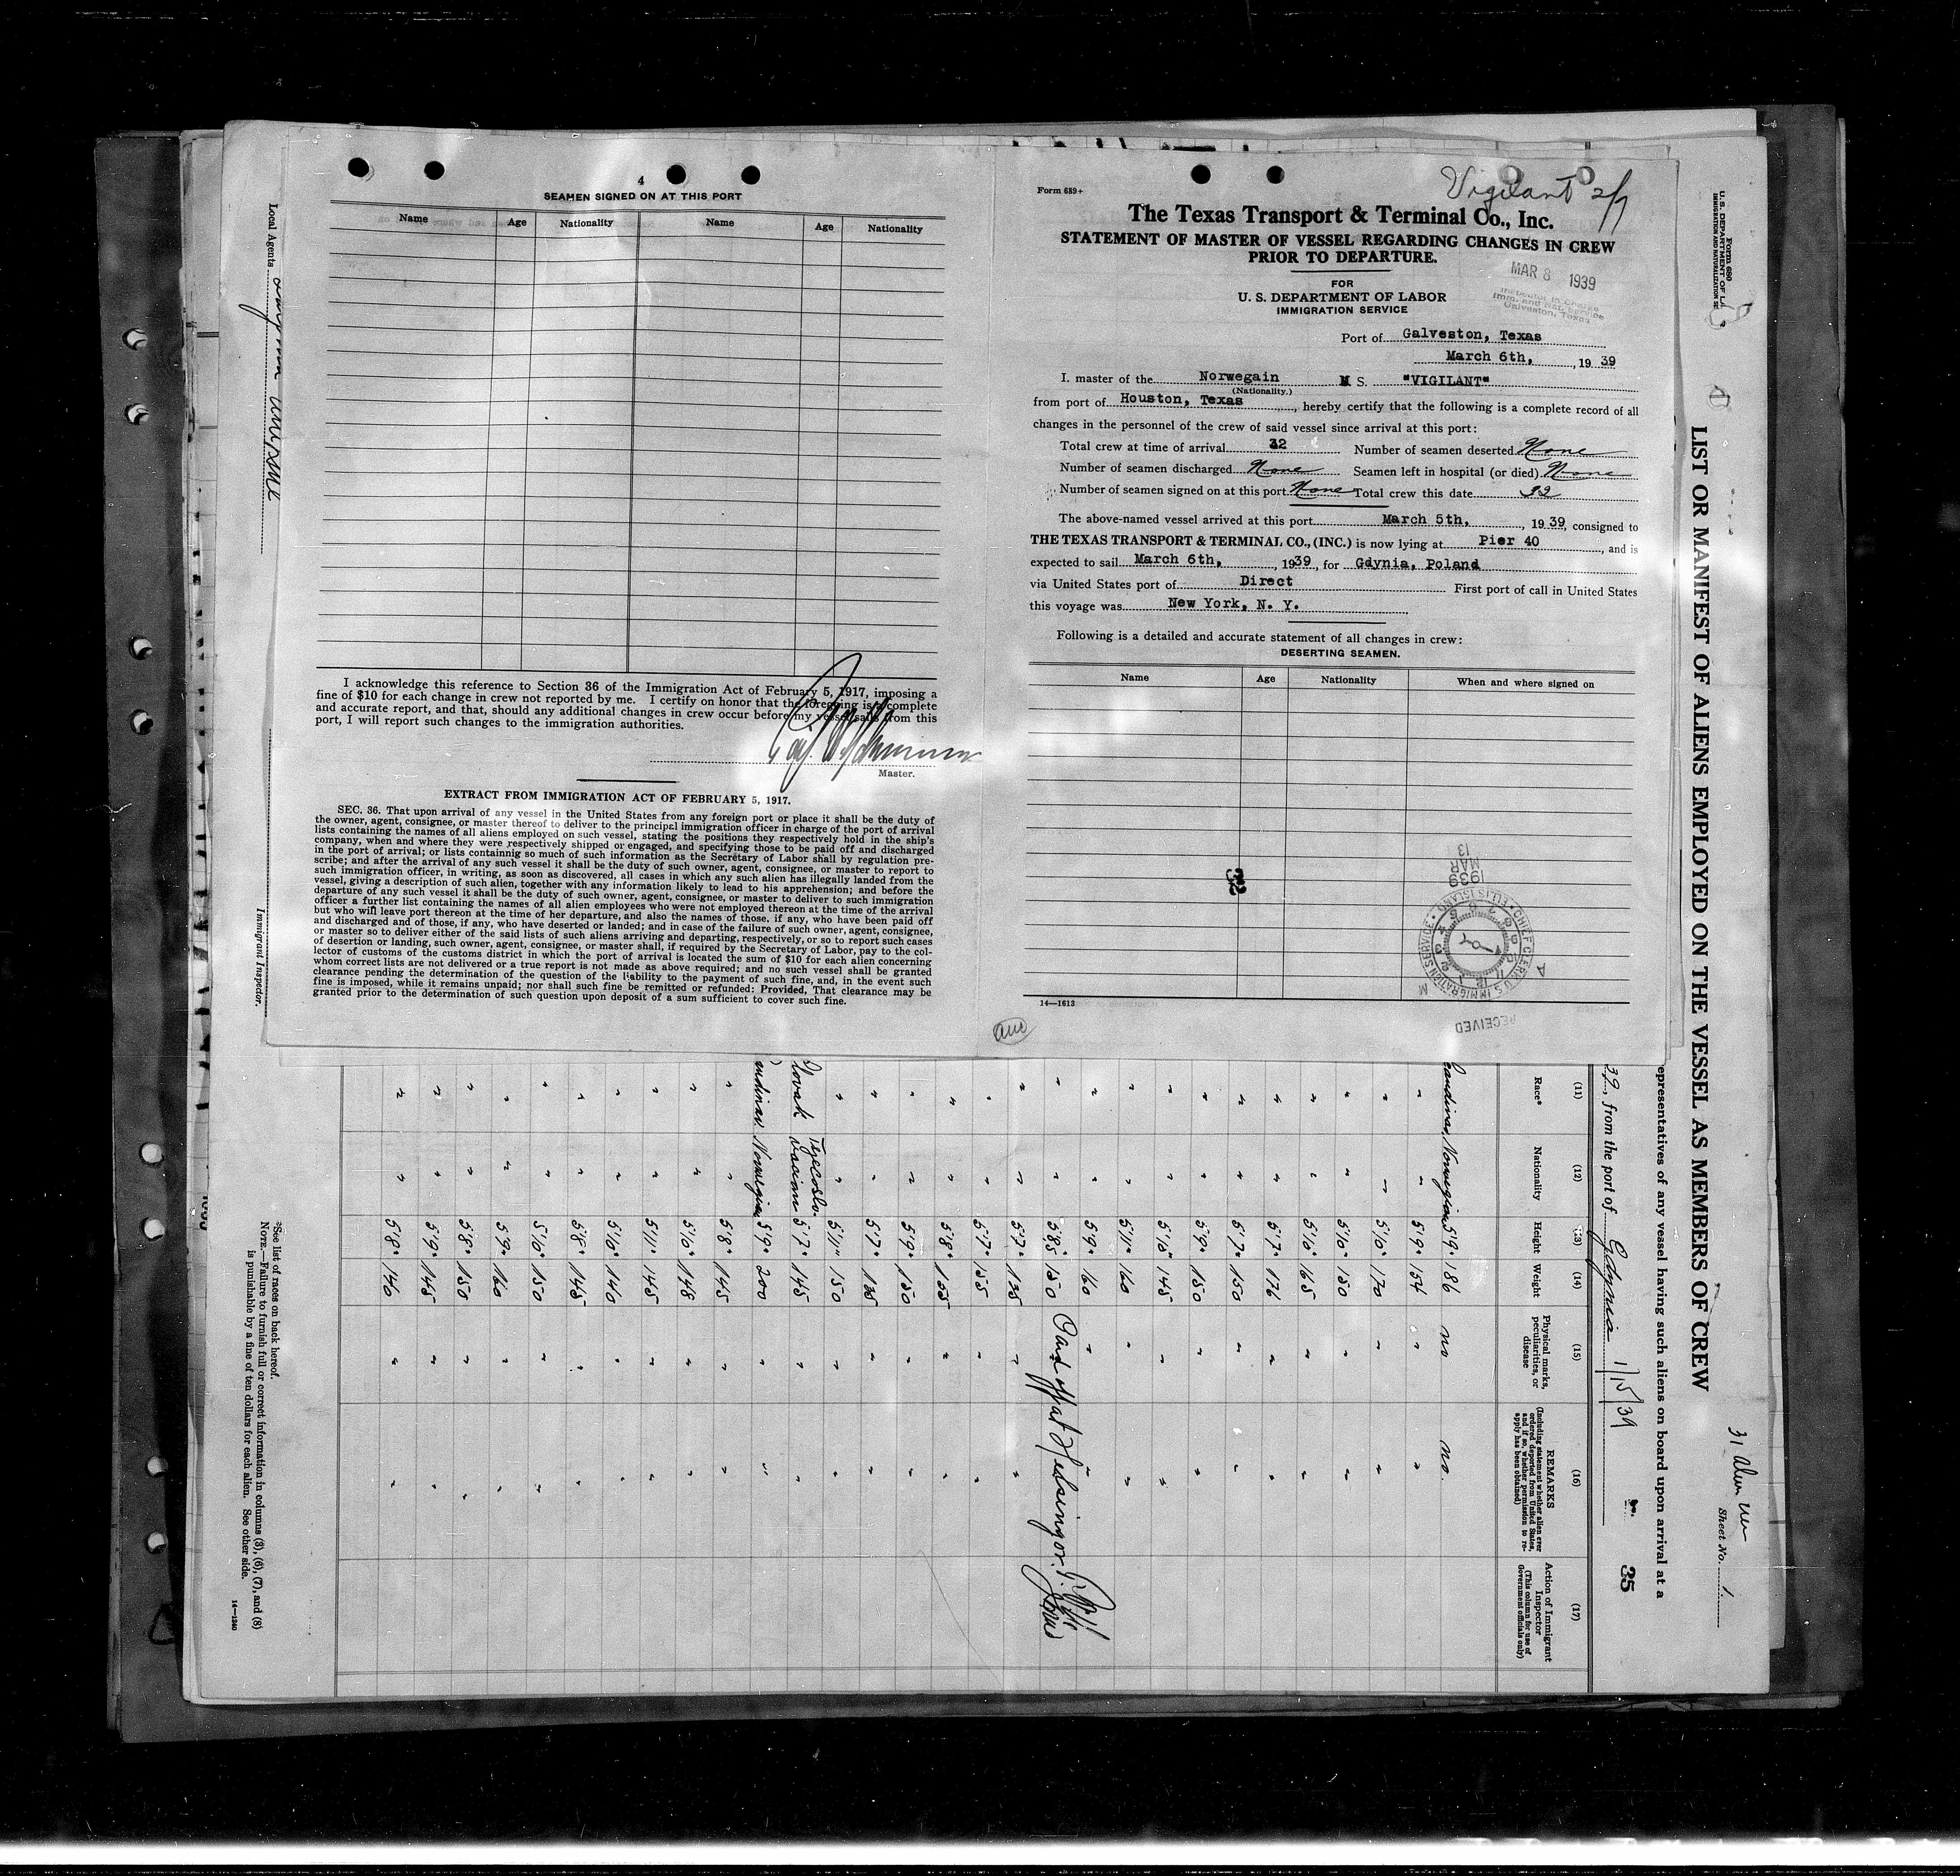 4
SEAMEN SIGNED ON AT THIS PORT
Name Age Nationality Name Age Nationality
I acknowledge this reference to Section 36 of the Immigration Act of February 5, 1917, imposing a
fine of $10 for each change in crew not reported by me. I certify on honor that the foregoing is a complete
and accurate report, and that, should any additional changes in crew occur before my vessel sails from this
port, I will report such changes to the immigration authorities.
Master.
EXTRACT FROM IMMIGRATION ACT OF FEBRUARY 5, 1917.
SEC. 36. That upon arrival of any vessel in the United States from any foreign port or place it shall be the duty of
the owner, agent, consignee, or master thereof to deliver to the principal immigration officer in charge of the port of arrival
lists containing the names of all aliens employed on such vessel, stating the positions they respectively hold in the ship's
company, when and where they were respectively shipped or engaged, and specifying those to be paid off and discharged
in the port of arrival; or lists containnig so much of such information as the Secretary of Labor shall by regulation pre-
scribe; and after the arrival of any such vessel it shall be the duty of such owner, agent, consignee, or master to report to
such immigration officer, in writing, as soon as discovered, all cases in which any such alien has illegally landed from the
vessel, giving a description of such alien, together with any information likely to lead to his apprehension; and before the
departure of any such vessel it shall be the duty of such owner, agent, consignee, or master to deliver to such immigration
officer a further list containing the names of all alien employees who were not employed thereon at the time of the arrival
but who will leave port thereon at the time of her departure, and also the names of those, if any, who have been paid off
and discharged and of those, if any, who have deserted or landed; and in case of the failure of such owner, agent, consignee,
or master so to deliver either of the said lists of such aliens arriving and departing, respectively, or so to report such cases
of desertion or landing, such owner, agent, consignee, or master shall, if required by the Secretary of Labor, pay to the col-
lector of customs of the customs district in which the port of arrival is located the sum of $10 for each alien concerning
whom correct lists are not delivered or a true report is not made as above required; and no such vessel shall be granted
clearance pending the determination of the question of the liability to the payment of such fine, and, in the event such
fine is imposed, while it remains unpaid; nor shall such fine be remitted or refunded: Provided, That clearance may be
granted prior to the determination of such question upon deposit of a sum sufficient to cover such fine.
Form 689+
Vigilant 2/7
The Texas Transport & Terminal Co., Inc.
STATEMENT OF MASTER OF VESSEL REGARDING CHANGES IN CREW
PRIOR TO DEPARTURE.
MAR 8 1939
Inspector in Charge
Imm. and Nat. Service
Galveston, Texas
FOR
U. S. DEPARTMENT OF LABOR
IMMIGRATION SERVICE
Port of Galveston, Texas
March 6th, , 19 39
I. master of the Norwegain M S. "VIGILANT"
(Nationality.)
from port of Houston, Texas , hereby certify that the following is a complete record of all
changes in the personnel of the crew of said vessel since arrival at this port:
Total crew at time of arrival 32 Number of seamen deserted None
Number of seamen discharged None Seamen left in hospital (or died) None
Number of seamen signed on at this port None Total crew this date 32
The above-named vessel arrived at this port March 5th, , 19 39, consigned to
THE TEXAS TRANSPORT & TERMINAL CO., (INC.) is now lying at Pier 40 , and is
expected to sail March 6th, , 1939, for Gdynia, Poland
via United States port of Direct First port of call in United States
this voyage was New York, N. Y.
Following is a detailed and accurate statement of all changes in crew:
DESERTING SEAMEN.
Name Age Nationality When and where signed on
32
1939
MAR
13
CHIEF CLERK U.S. IMMIGRATION SERVICE • ELLIS ISLAND
RECEIVED
14—1613
Form 680
U. S. DEPARTMENT OF LA
IMMIGRATION AND NATURALIZATION SE
LIST OR MANIFEST OF ALIENS EMPLOYED ON THE VESSEL AS MEMBERS OF CREW
Sheet No. 1
epresentatives of any vessel having such aliens on board upon arrival at a
39, from the port of Gdynia 1/15/39
35
(11) (12) (13) (14) (15) (16) (17)
Race* Nationality Height Weight Physical marks, peculiarities, or disease
REMARKS
(Including statement whether alien ever ordered deported from United States, and if so, whether permission to re-apply has been obtained)
Action of Immigrant Inspector
(This column for use of Government officials only)
Norwegian 5'9" 186 no no.
" " 5'9" 154 " "
5'10" 170
5'10" 150
5'10" 165
5'7" 176
5'7" 150
5'9" 150
5'10" 145
5'11" 160
5'9" 160
5'8.5" 150 Paid off at Helsingor.
5'7" 135
5'7" 155
5'8" 155
5'9" 150
5'7" 135
5'11" 150
Slovak 5'7" 145
Norwegian 5'9" 200
5'8" 145
5'10" 148
5'11" 145
5'10" 140
5'8" 145
5'10" 150
5'9" 160
5'8" 150
5'9" 145
5'8" 140
*See list of races on back hereof.
NOTE.—Failure to furnish full or correct information in columns (3), (6), (7), and (8)
is punishable by a fine of ten dollars for each alien. See other side.
14—1240
Local Agents
Immigrant Inspector.